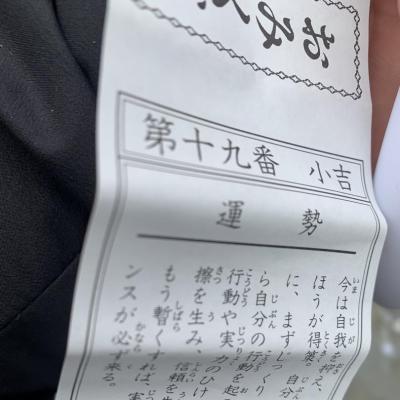 おみく
第十九番 小吉
運勢
今は自我を抑え、
ほうが得策。自分
に、まずじっくり
ら自分の行動を起
行動や実力のひけ
擦を生み、信頼を
もう暫くすれば、実
ンスが必ず来る。